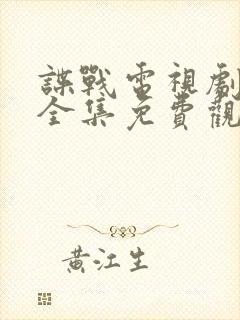 諜戰電視劇
全集免費觀
黃江生